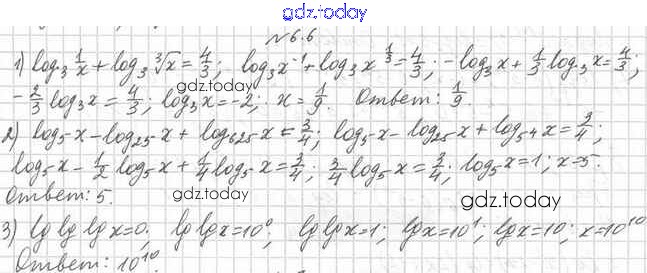 gdz.today
№6.6
1) log₃ 1/x + log₃ ∛x = 4/3; log₃x⁻¹ + log₃x^(1/3) = 4/3; -log₃x + 1/3 log₃x = 4/3;
-2/3 log₃x = 4/3; log₃x = -2; x = 1/9. Ответ: 1/9.
gdz.today
2) log₅x - log₂₅x + log₆₂₅x = 3/4; log₅x - log₂₅x + log₅₄x = 3/4;
log₅x - 1/2 log₅x + 1/4 log₅x = 3/4; 3/4 log₅x = 3/4; log₅x = 1; x = 5.
Ответ: 5.
gdz.today
gdz.today
3) lg lg lg x = 0; lg lg x = 10⁰; lg lg x = 1; lg x = 10¹; lg x = 10; x = 10¹⁰
Ответ: 10¹⁰